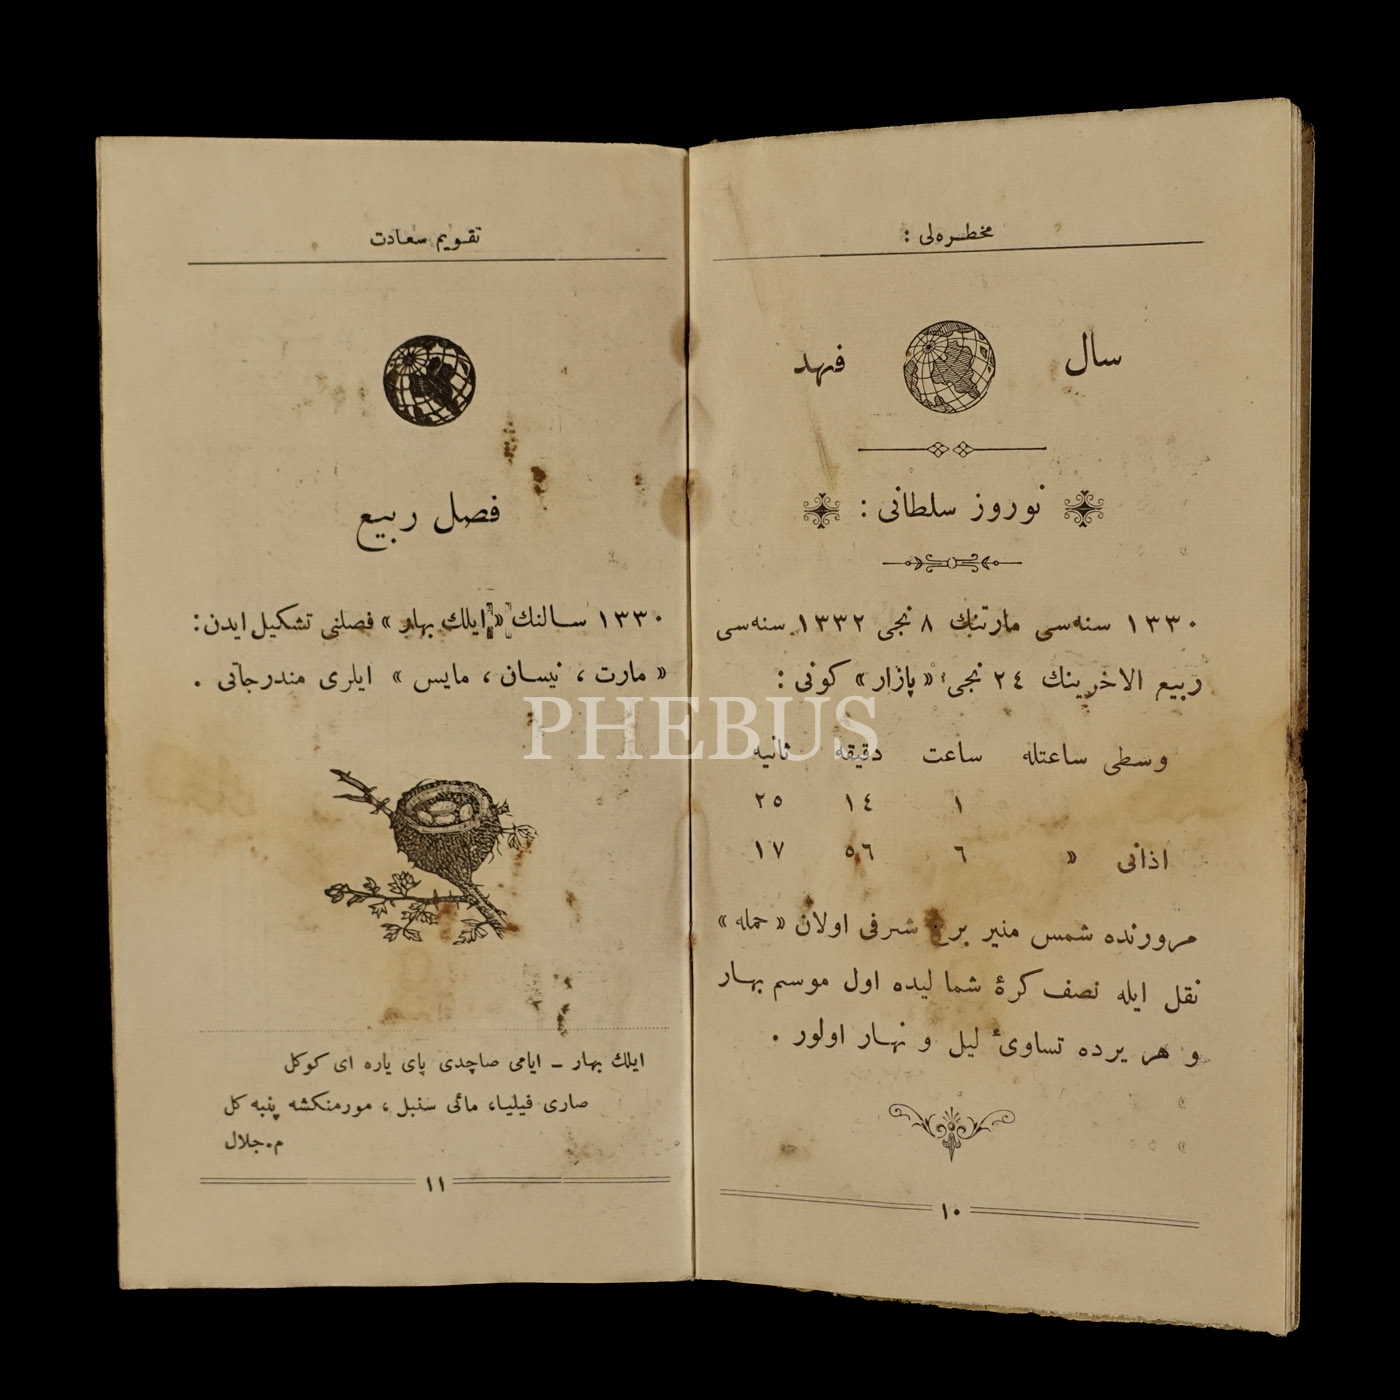 مخطره‌لی :
سال فهد
نوروز سلطانی :
١٣٣٠ سنه‌سی مارتنك ٨ نجی ١٣٣٢ سنه‌سی
ربیع الاخرینك ٢٤ نجی «پازار» كونی :
وسطی ساعتله ساعت دقیقه ثانیه
١ ١٤ ٢٥
اذانی » ٦ ٥٦ ١٧
مرورنده شمس منیر برج شرفی اولان «حمله»
نقل ایله نصف كرۀ شمالیده اول موسم بهار
و هر یرده تساویٔ لیل و نهار اولور .
١٠
تقویم سعادت
فصل ربیع
١٣٣٠ سالنك «ایلك بهار» فصلنی تشكیل ایدن :
«مارت ، نیسان ، مایس» ایلری مندرجاتی .
ایلك بهار ـ ایامی صاچدی پای یاره ای كوكل
صاری فیلیا، مائی سنبل ، مورمنكشه پنبه كل
م.جلال
١١
PHEBUS